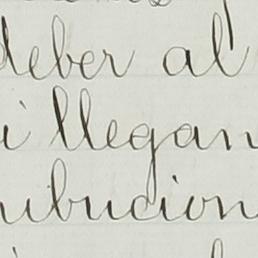 deber al
i llegan
ribucion